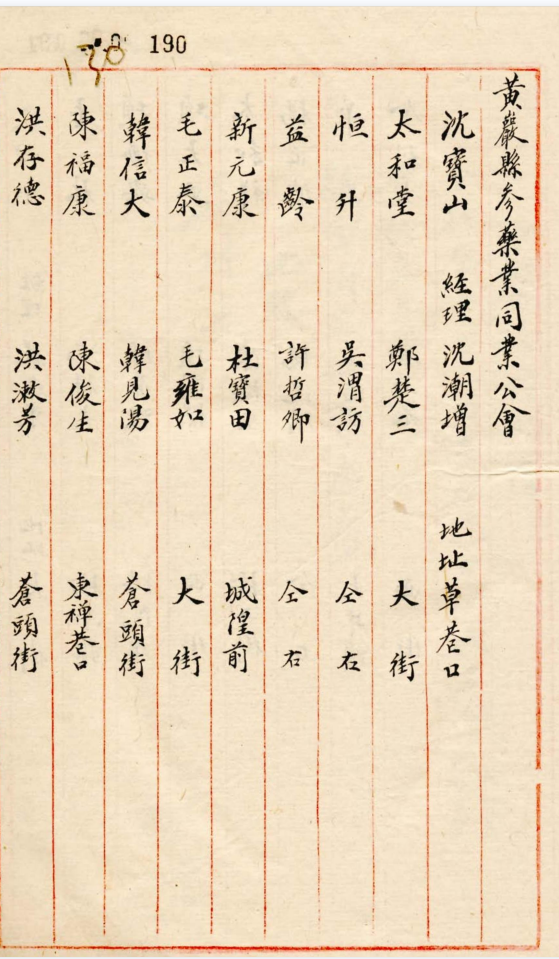 190
130
黃巖縣參藥業同業公會
沈寶山 経理 沈潮增 地址 草巷口
太和堂 鄭楚三 大街
恒升 吳渭訪 仝右
益齡 許哲卿 仝右
新元康 杜寶田 城隍前
毛正泰 毛雍如 大街
韓信大 韓見陽 蒼頭街
陳福康 陳俊生 東禅巷口
洪存德 洪漱芳 蒼頭街